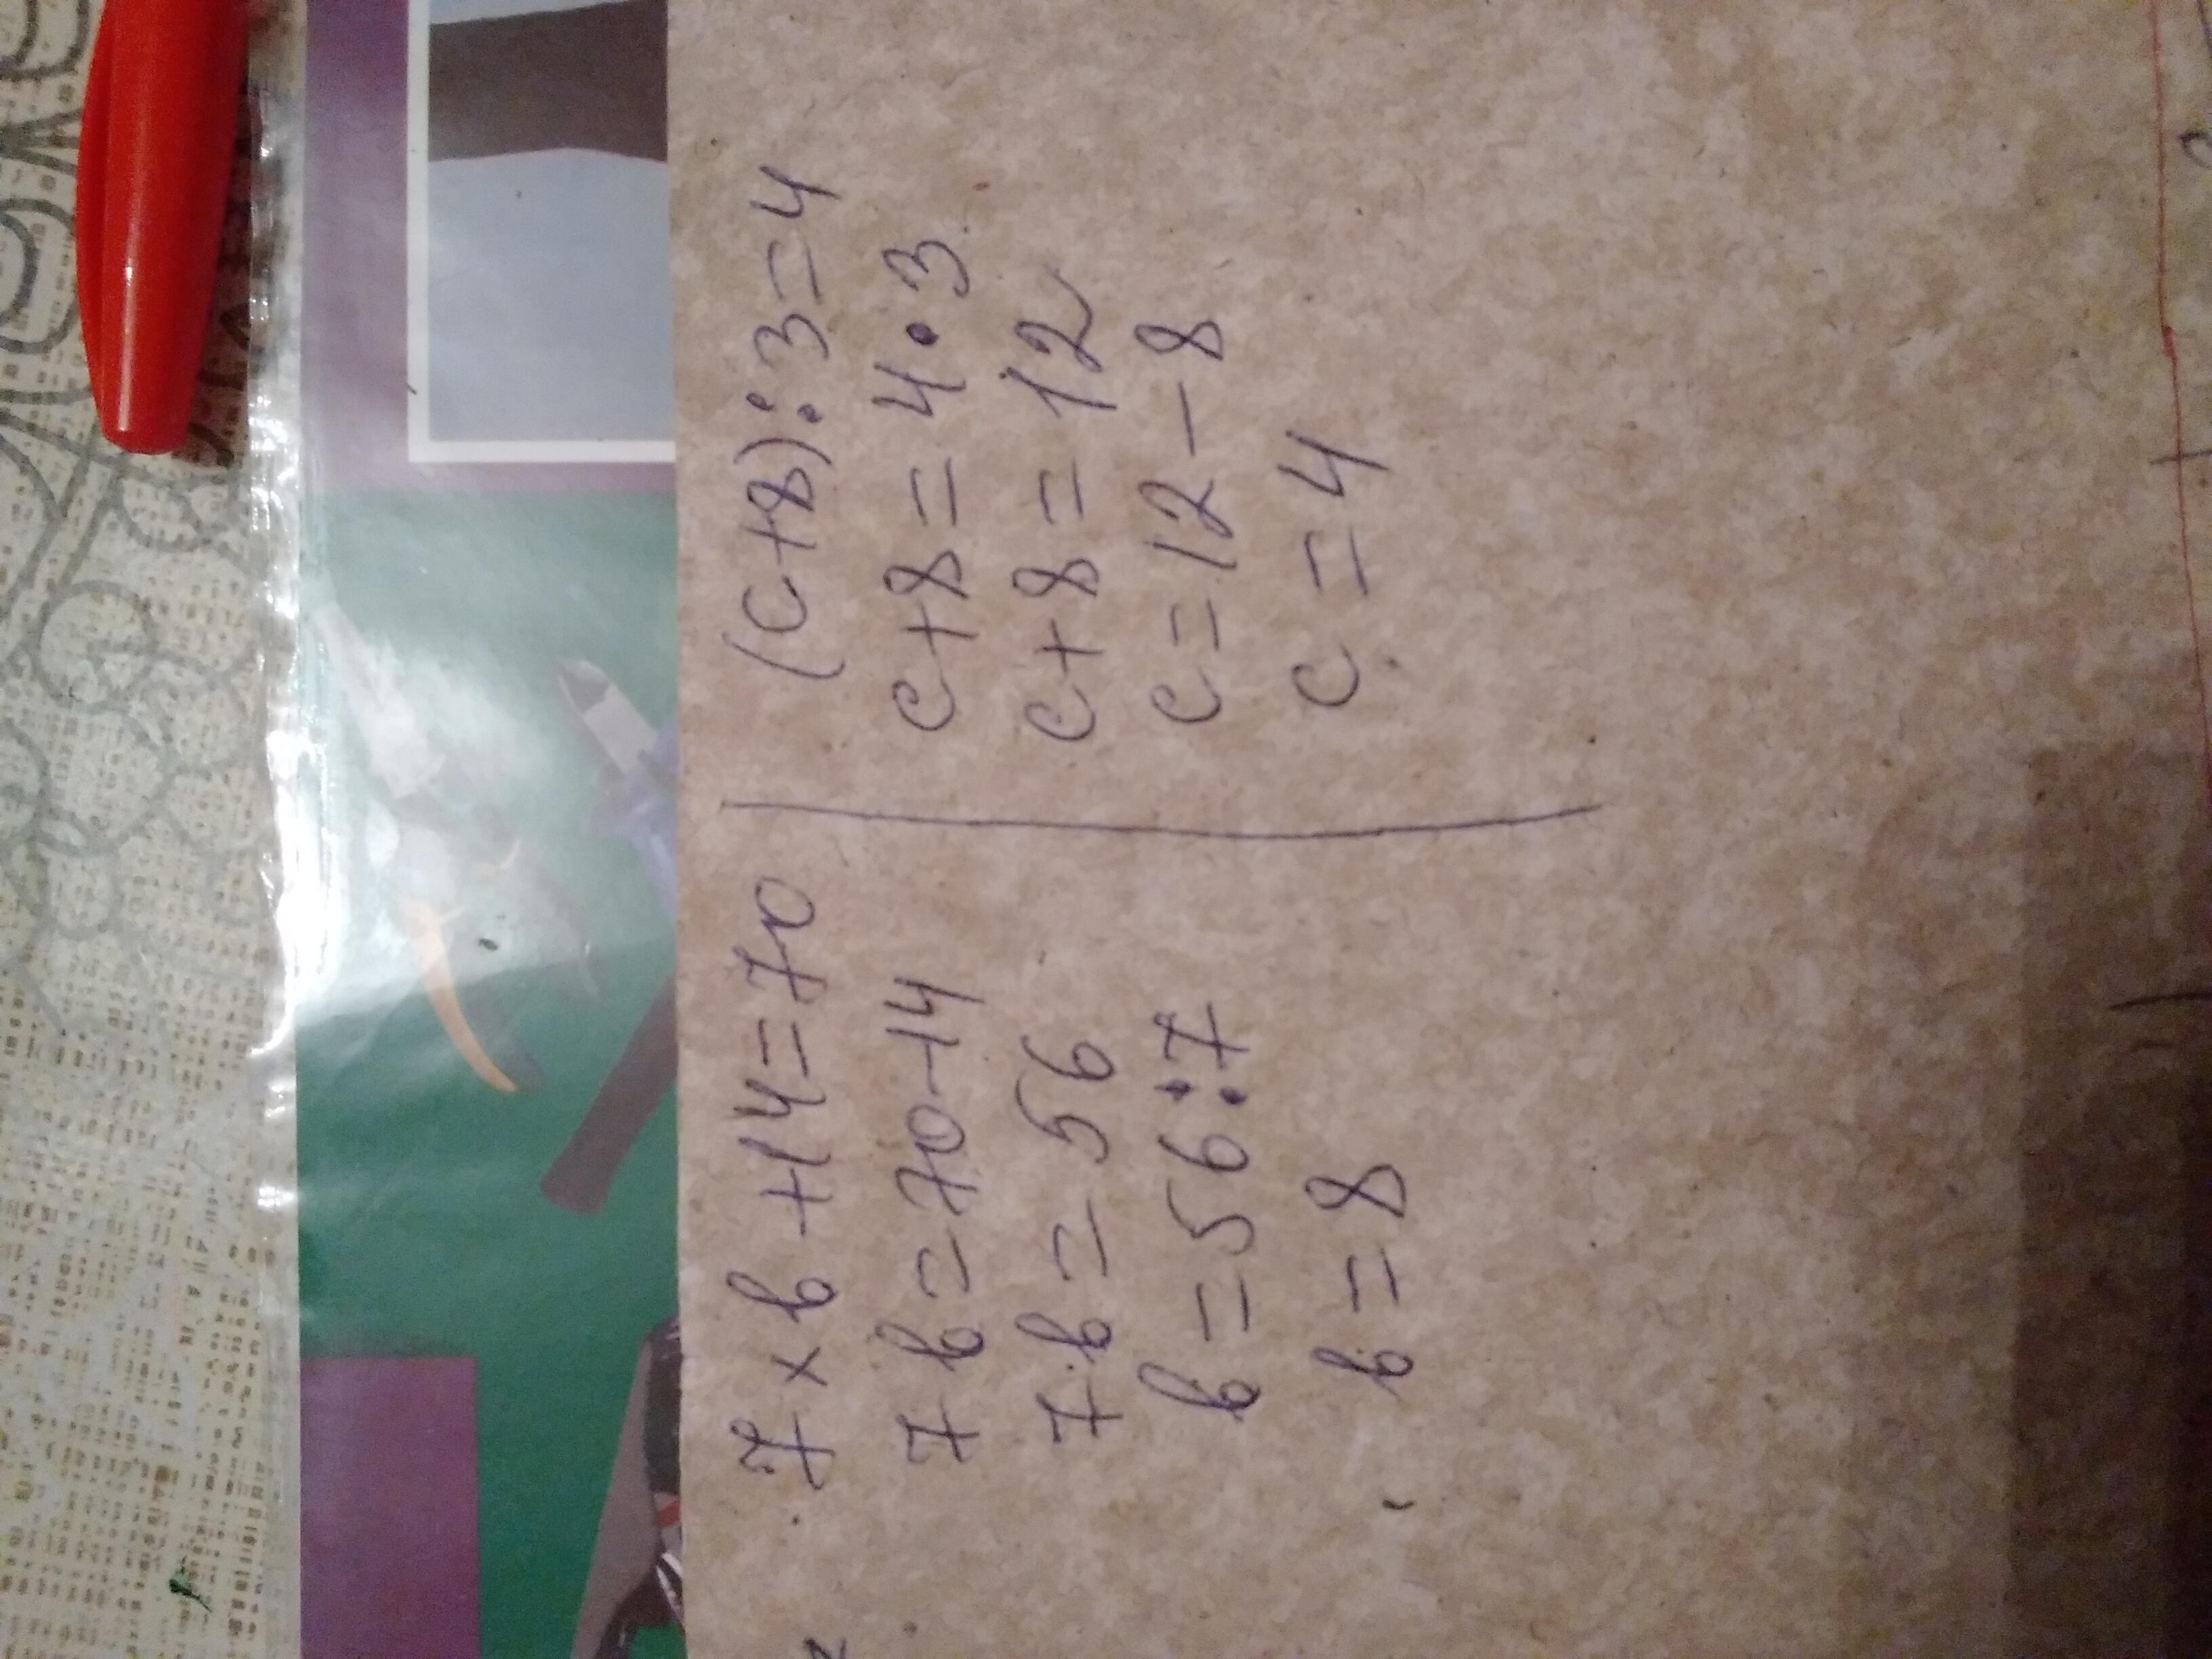 7 × в + 14 = 70
7 в = 70 - 14
7·в = 56
в = 56 : 7
в = 8
(с+8) : 3 = 4
с+8 = 4 · 3
с+8 = 12
с = 12 - 8
с = 4